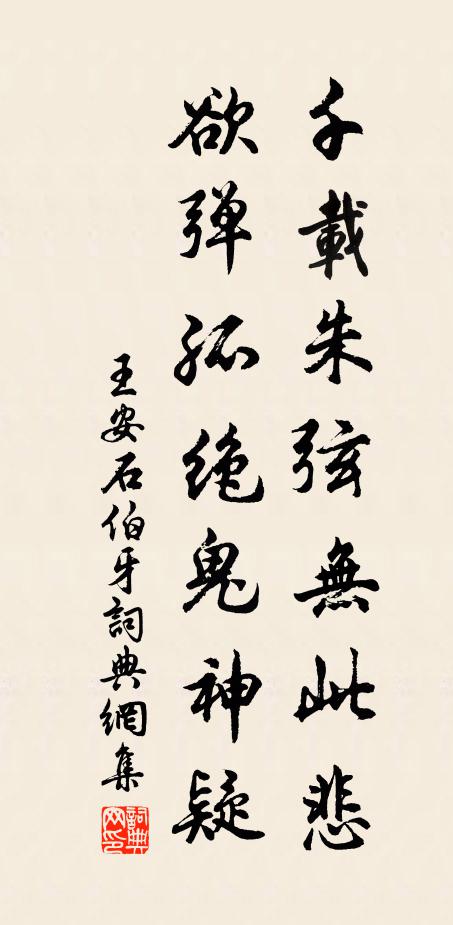 千載朱弦無此悲
欲弾孤絶鬼神疑
王安石伯牙詞典網集
詞典
网印